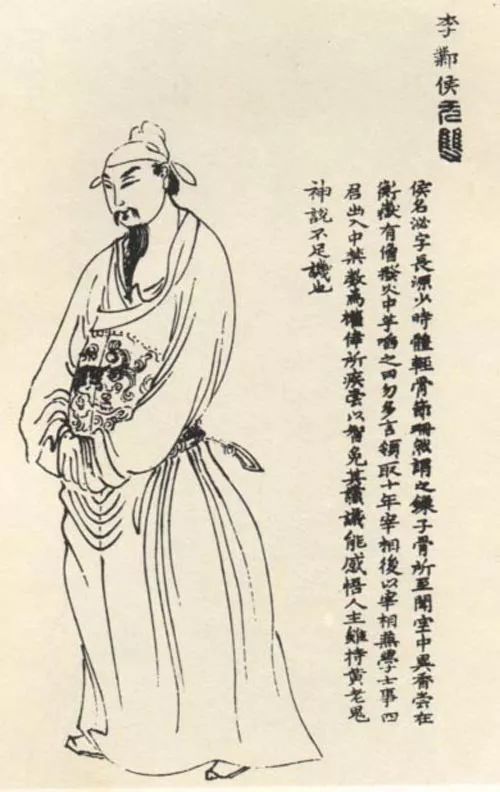 李鄴侯 无雙
侯名泌字長源少時體輕骨節珊然謂之鎖子骨所至聞空中異香嘗在
衡嶽有僧撥火中芋啗之曰勿多言領取十年宰相後以宰相兼學士事四
君出入中禁數為權倖所疾嘗以智免其讜議能感悟人主雖持黃老鬼
神說不足譏也